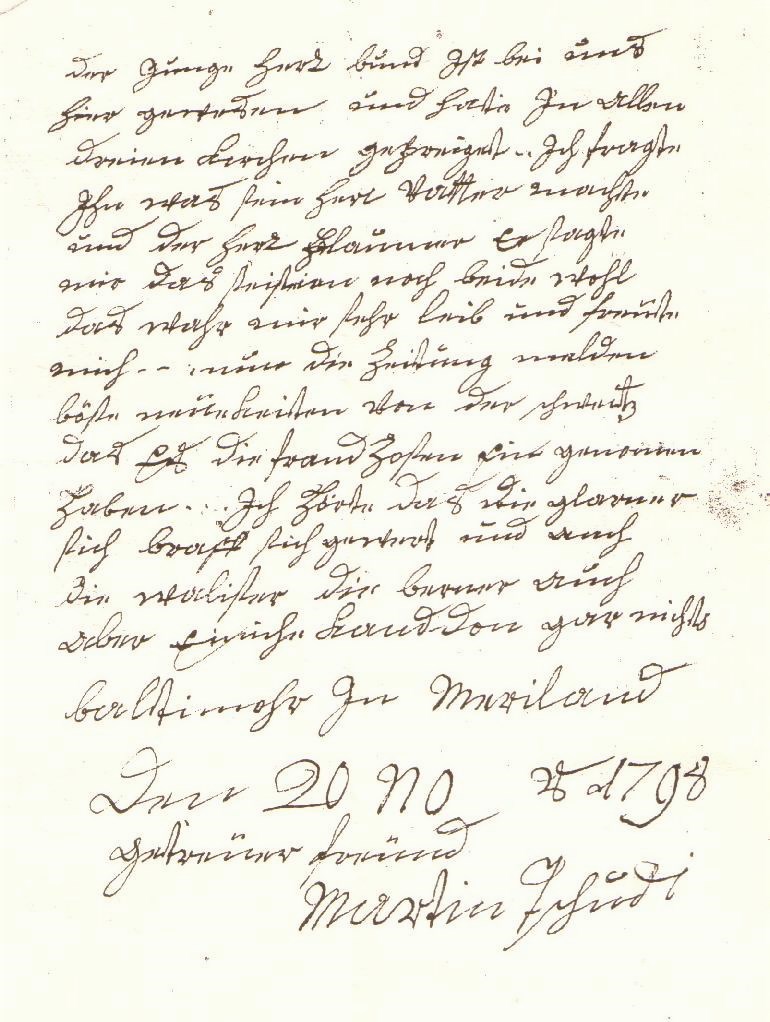 der Junge herr bund Ist bei uns
hier gewesen und hate In allen
dreien kirchen gepreiget.. Ich fragte
Ihn was sein herr Vatter machte
und der herr blaumer Er sagte
mir das seisein noch beide wohl
das wahr mir sehr leib und freüte
mich - - nun die Zeitung melden
böse neüekeiten von der schweitz
das Es die frandzosen Ein genomen
haben ... Ich hörte das die glarner
sich braff sich gewert und auch
die waliser die berner auch
aber Einiche kanddon gar nichts
baltimohr In Meriland
Den 20 No 1798
getreüer freünd
Martin Tschudi